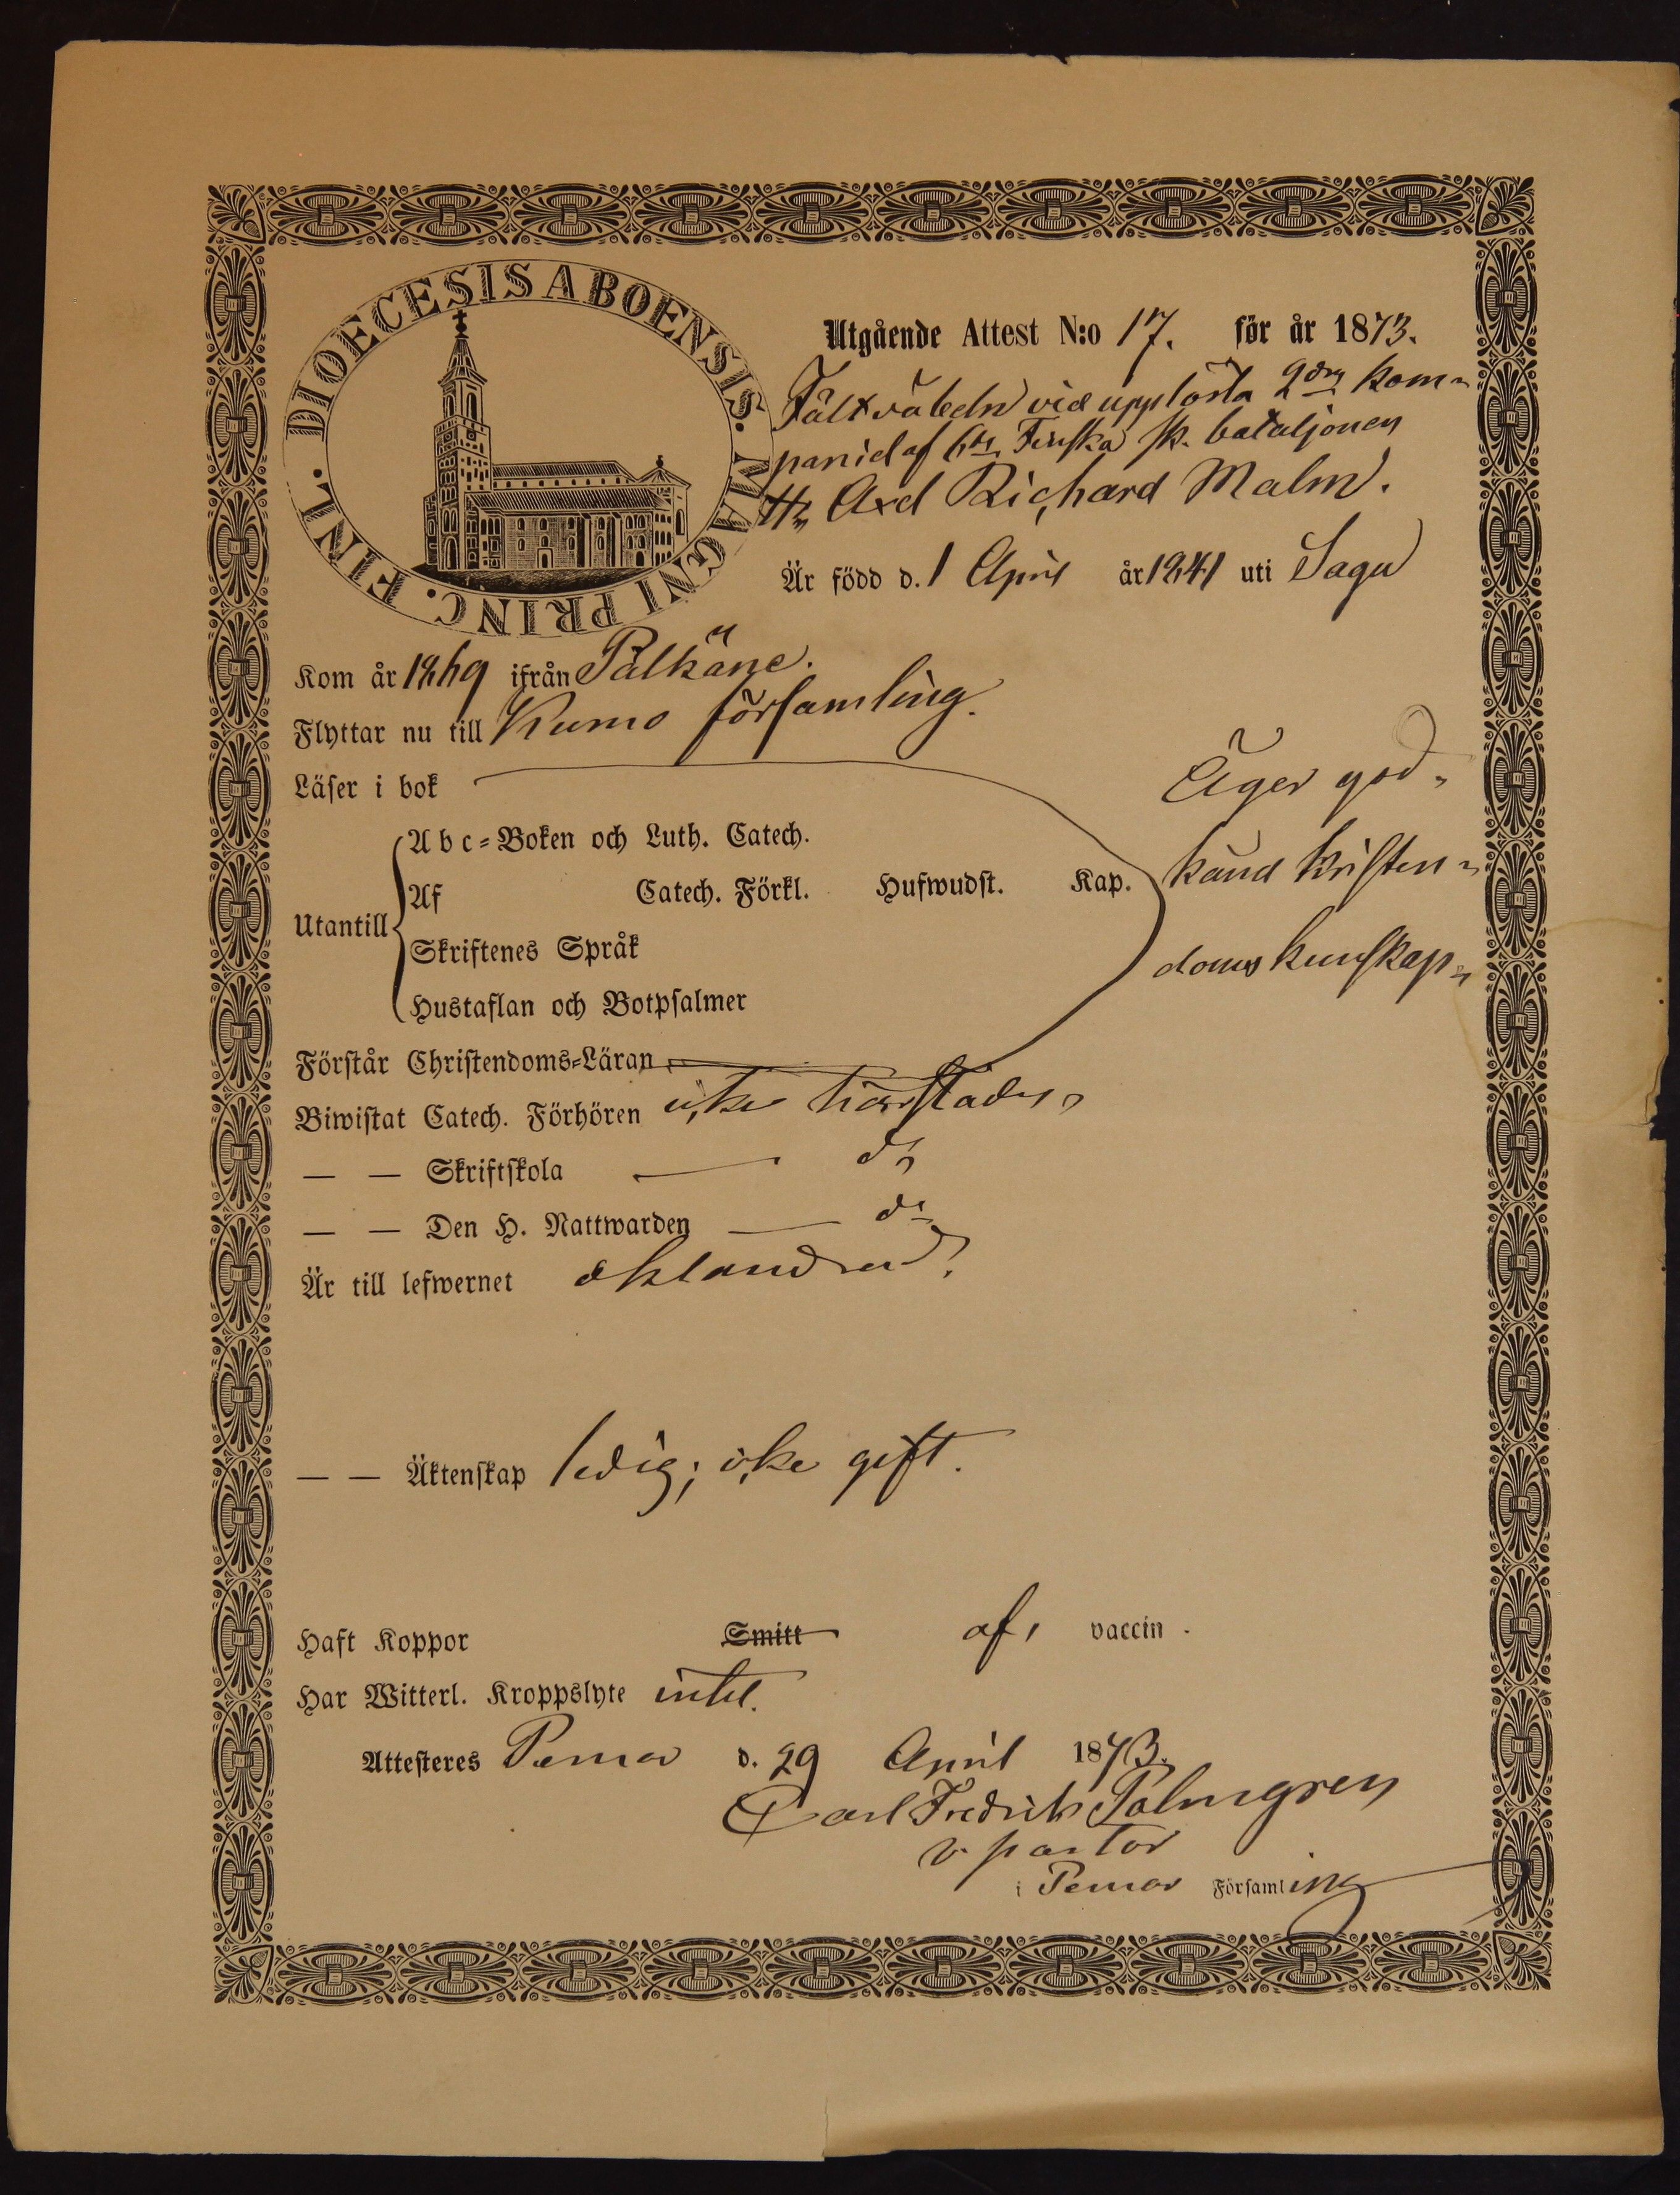 DIOECESIS ABOENSIS. MAGNI PRINC. FINL.
Utgående Attest N:o 17. för år 1873.
Fältväbeln vid upplösta 2dra kom-
paniet af 6te Finska sk. bataljonen
Hr Axel Richard Malm.
Är född d. 1 April år 1841 uti Sagu
Kom år 1869 ifrån Pälkäne.
Flyttar nu till Kumo församling.
Läser i bok
Äger god-
Utantill
Abc-Boken och Luth. Catech.
Af Catech. Förkl. Hufwudst. Kap.
känd kristen-
Skriftenes Språk
doms kunskap
Hustaflan och Botpsalmer
Förstår Christendoms-Läran
Biwistat Catech. Förhören icke härstädes
— — Skriftskola — do
— — Den H. Nattwarden — do
Är till lefwernet oklandrad.
— — Äktenskap ledig; icke gift.
Haft Koppor Smitt af vaccin.
Har Witterl. Kroppslyte intet.
Attesteres Pemar d. 29 April 1873.
Carl Fredrik Palmgren
v. pastor
i Pemar Församling